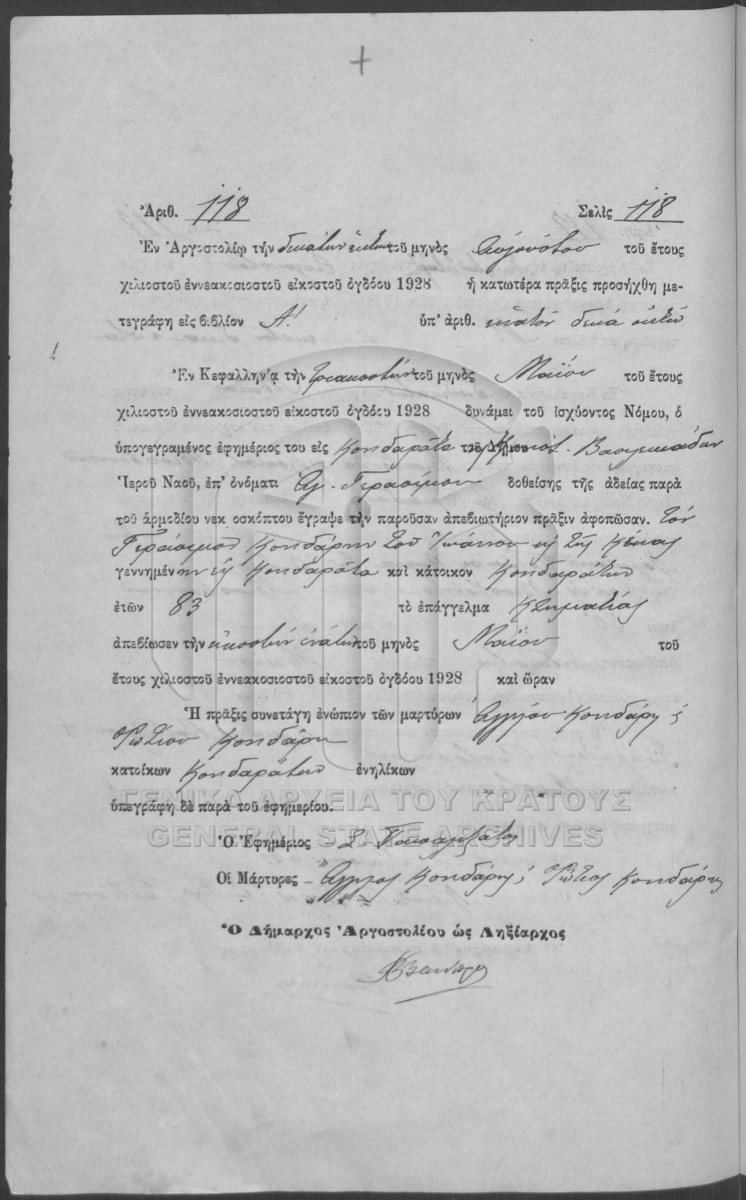 Ἀριθ. 118 Σελὶς 118
Ἐν Ἀργοστολίῳ τὴν δεκάτην ἕκτην τοῦ μηνὸς Αὐγούστου τοῦ ἔτους
χιλιοστοῦ ἐννεακοσιοστοῦ εἰκοστοῦ ὀγδόου 1928 ἡ κατωτέρα πρᾶξις προσήχθη με-
τεγράφη εἰς βιβλίον Α! ὑπ' ἀριθ. ἑκατὸν δέκα ὀκτὼ
Ἐν Κεφαλληνίᾳ τὴν τριακοστὴν τοῦ μηνὸς Μαΐου τοῦ ἔτους
χιλιοστοῦ ἐννεακοσιοστοῦ εἰκοστοῦ ὀγδόου 1928 δυνάμει τοῦ ἰσχύοντος Νόμου, ὁ
ὑπογεγραμένος ἐφημέριος του εἰς Κονδαράτα τοῦ Δήμου Κοινότ.
Ἱεροῦ Ναοῦ, ἐπ' ὀνόματι Ἁγ. Γερασίμου δοθείσης τῆς ἀδείας παρὰ
τοῦ ἁρμοδίου νεκ οσκόπτου ἔγραψε τὴν παροῦσαν ἀπεβιωτήριον πρᾶξιν ἀφοπῶσαν. τὸν
Γεράσιμον Κονδάρην τοῦ Ἰωάννου κ τῆς
γεννημένην εἰς Κονδαράτα καὶ κάτοικον Κονδαράτων
ἐτῶν 83 τὸ ἐπάγγελμα Κτηματίας
ἀπεβίωσεν τὴν εἰκοστὴν ἐνάτην τοῦ μηνὸς Μαΐου τοῦ
ἔτους χιλιοστοῦ ἐννεακοσιοστοῦ εἰκοστοῦ ὀγδόου 1928 καὶ ὥραν
Ἡ πρᾶξις συνετάγη ἐνώπιον τῶν μαρτύρων Ἀγγέλου Κονδάρη &
Φωτίου Κονδάρη
κατοίκων Κονδαράτων ἐνηλίκων
ὑπεγράφη δὲ παρὰ τοῦ ἐφημερίου.
ΓΕΝΙΚΑ ΑΡΧΕΙΑ ΤΟΥ ΚΡΑΤΟΥΣ
GENERAL STATE ARCHIVES
Ὁ Ἐφημέριος Σ.
Οἱ Μάρτυρες Ἄγγελος Κονδάρης & Φώτιος Κονδάρης
Ὁ Δήμαρχος Ἀργοστολίου ὡς Ληξίαρχος